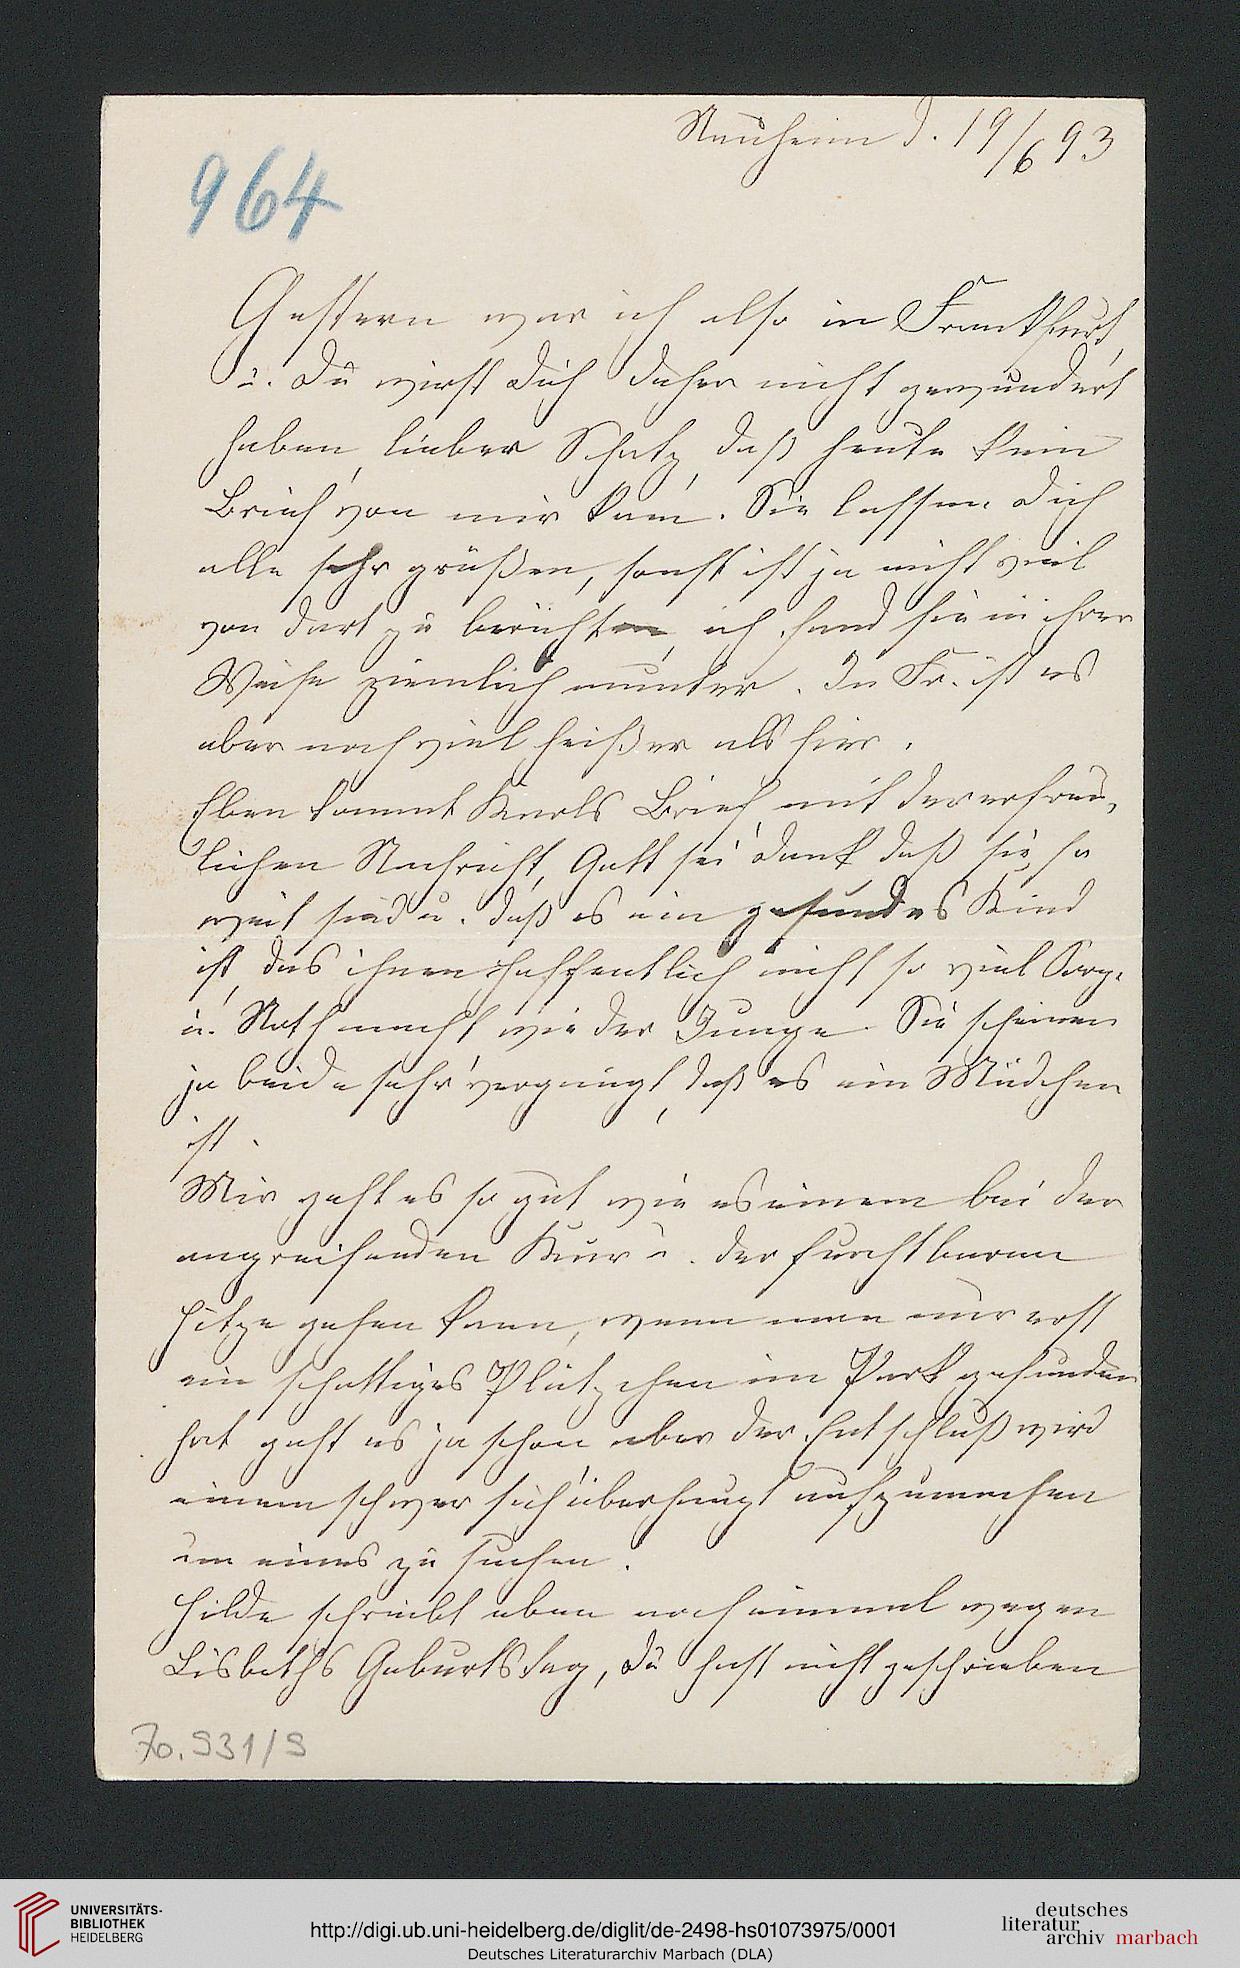 Nauheim d. 19/6 93
964
Gestern war ich also in Frankfurt,
u. Du wirst Dich daher nicht gewundert
haben, lieber Schatz, daß heute kein
Brief von mir kam. Sie lassen Dich
alle sehr grüßen, sonst ist ja nicht viel
von dort zu berichten, ich fand sie in ihrer
Weise ziemlich munter. In Fr. ist es
aber noch viel heißer als hier.
Eben kommt Karls Brief mit der erfreu-
lichen Nachricht, Gott sei Dank daß sie so
weit sind u. daß es ein gesundes Kind
ist, das ihnen hoffentlich nicht so viel Sorge
u. Noth macht wie der Junge. Sie scheinen
ja beide sehr vergnügt, daß es ein Mädchen
ist.
Mir geht es so gut wie es einem bei der
angreifenden Kur u. der furchtbaren
Hitze gehen kann, wenn man nur erst
ein schattiges Plätzchen im Park gefunden
hat geht es ja schon aber der Entschluß wird
einem schwer sich überhaupt aufzumachen
um eines zu suchen.
Hilde schreibt eben noch einmal wegen
Lisbeth's Geburtstag, Du hast nicht geschrieben
70.931/9
UNIVERSITÄTS-
BIBLIOTHEK
HEIDELBERG
http://digi.ub.uni-heidelberg.de/diglit/de-2498-hs01073975/0001
Deutsches Literaturarchiv Marbach (DLA)
deutsches
literatur
archiv marbach